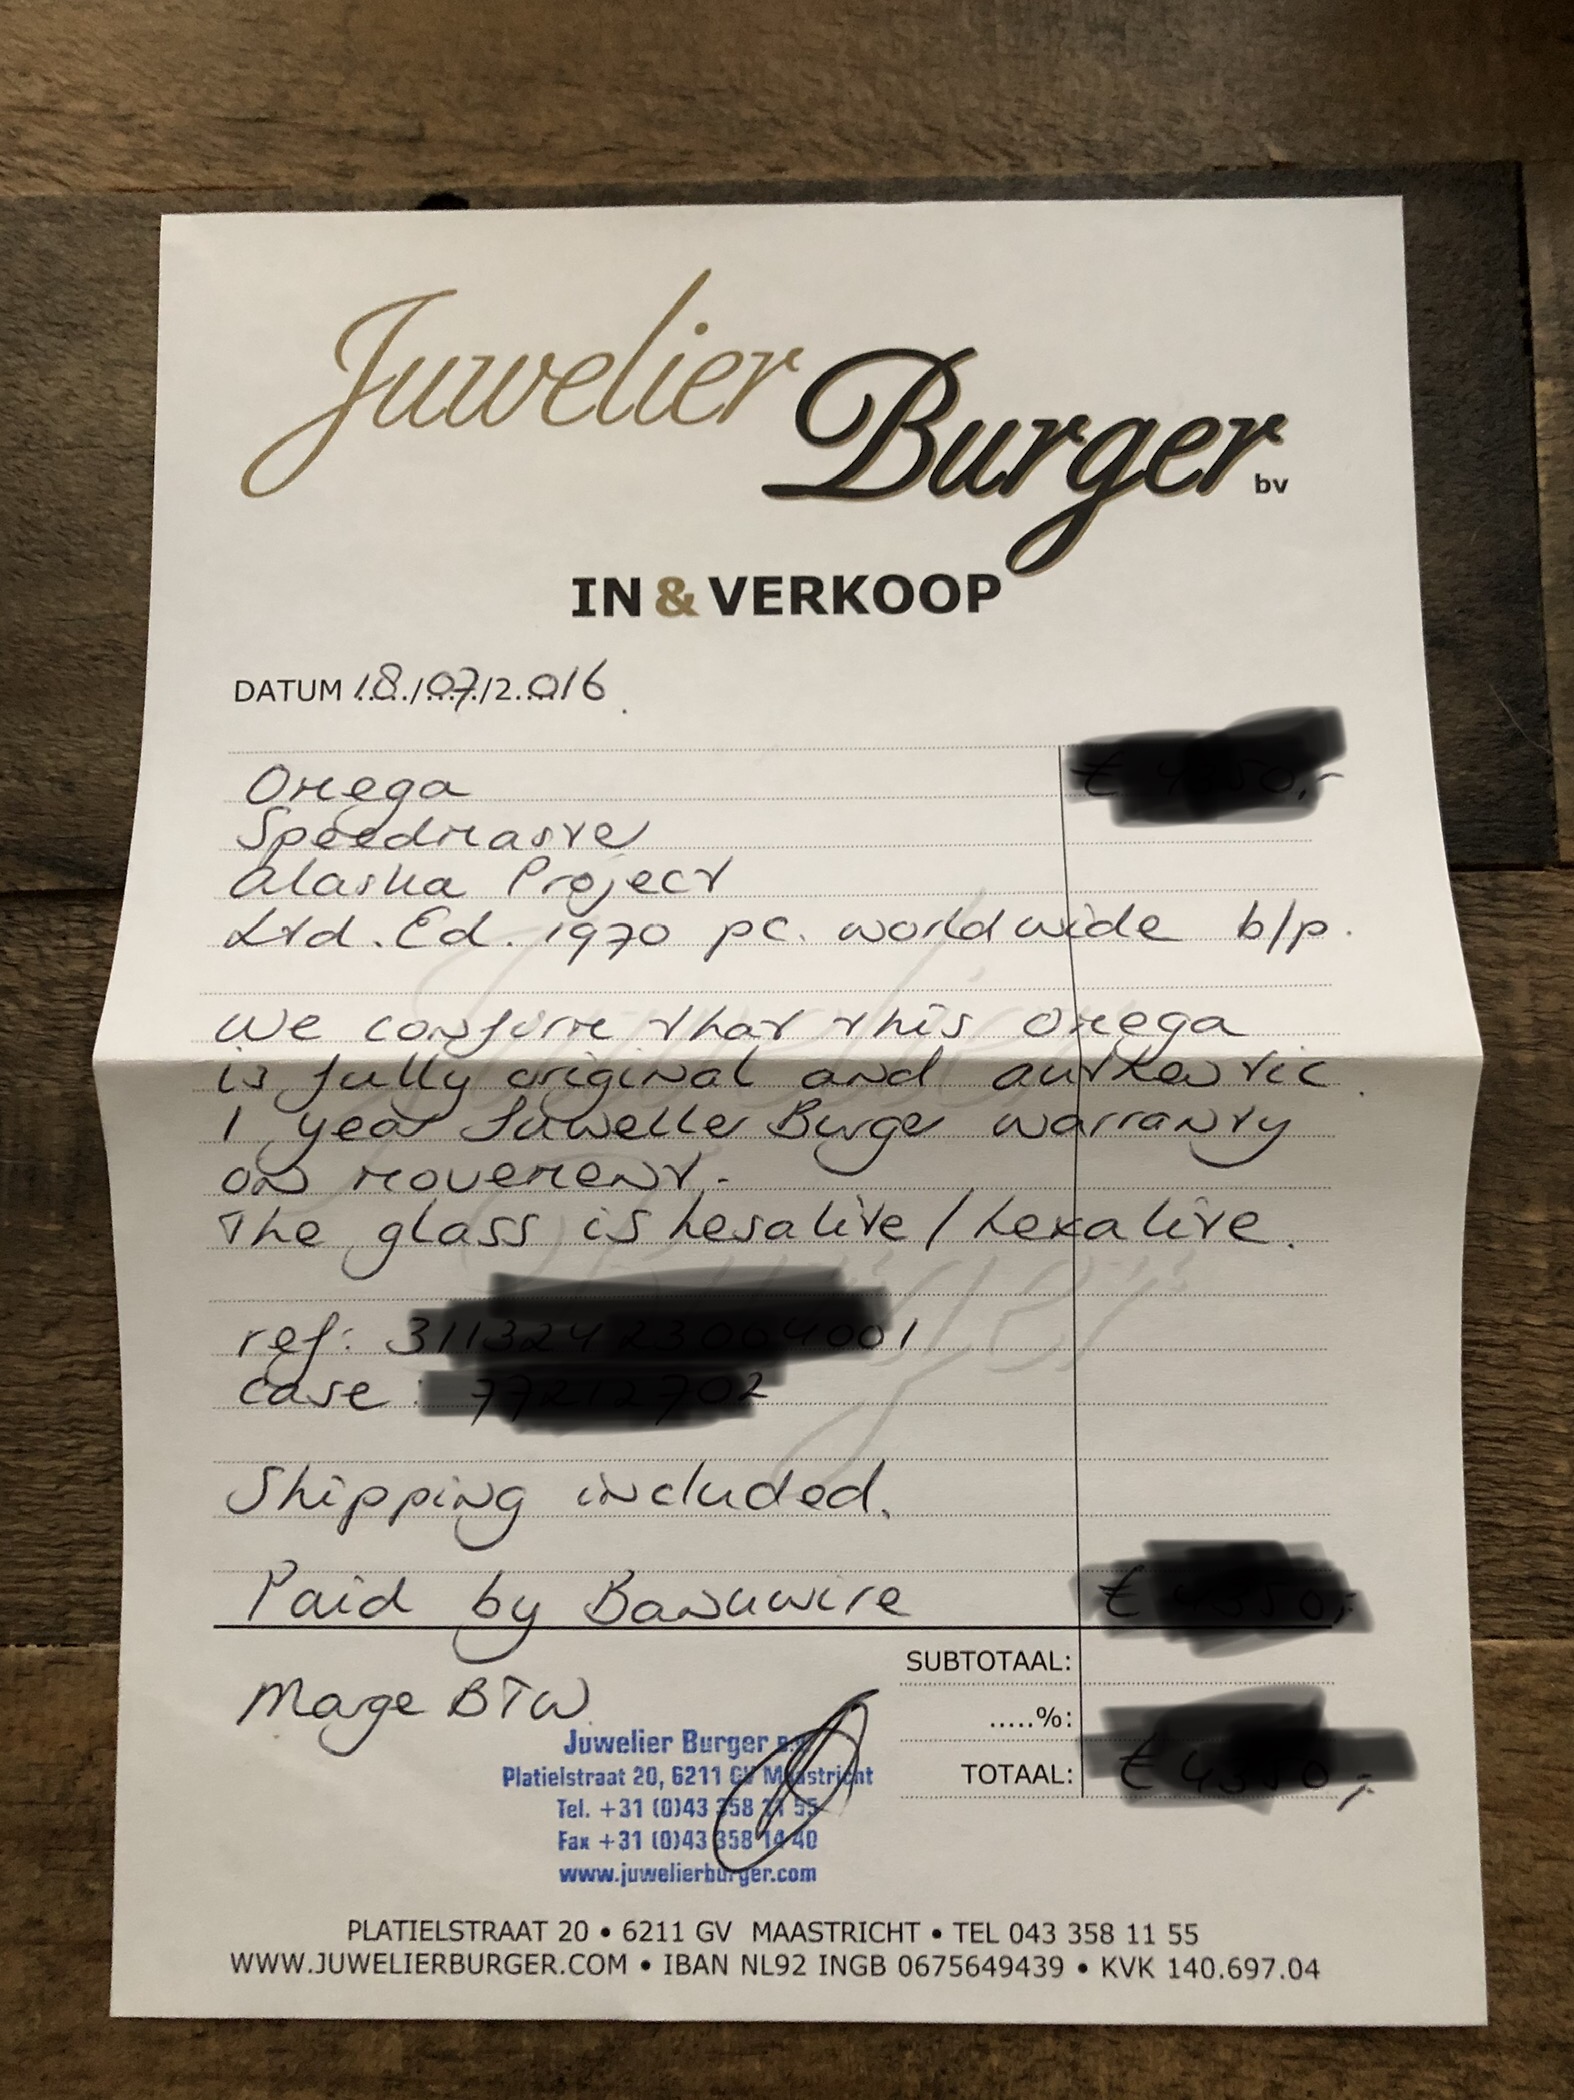 Juwelier Burger bv
IN & VERKOOP
DATUM 18/07/2.016
Omega
Speedmaster
Alaska Project
Ltd. Ed. 1970 pc. worldwide b/p.
We confirm that this Omega
is fully original and authentic.
1 year Juwelier Burger warranty
on movement.-
The glass is hesalite/hexalite.
ref:
case:
Shipping included.
Paid by Bankwire
SUBTOTAAL:
Marge BTW
.....%:
Juwelier Burger b.v.
Platielstraat 20, 6211 GV Maastricht
TOTAAL:
Tel. +31 (0)43 358 11 55
Fax +31 (0)43 358 14 40
www.juwelierburger.com
PLATIELSTRAAT 20 • 6211 GV MAASTRICHT • TEL 043 358 11 55
WWW.JUWELIERBURGER.COM • IBAN NL92 INGB 0675649439 • KVK 140.697.04